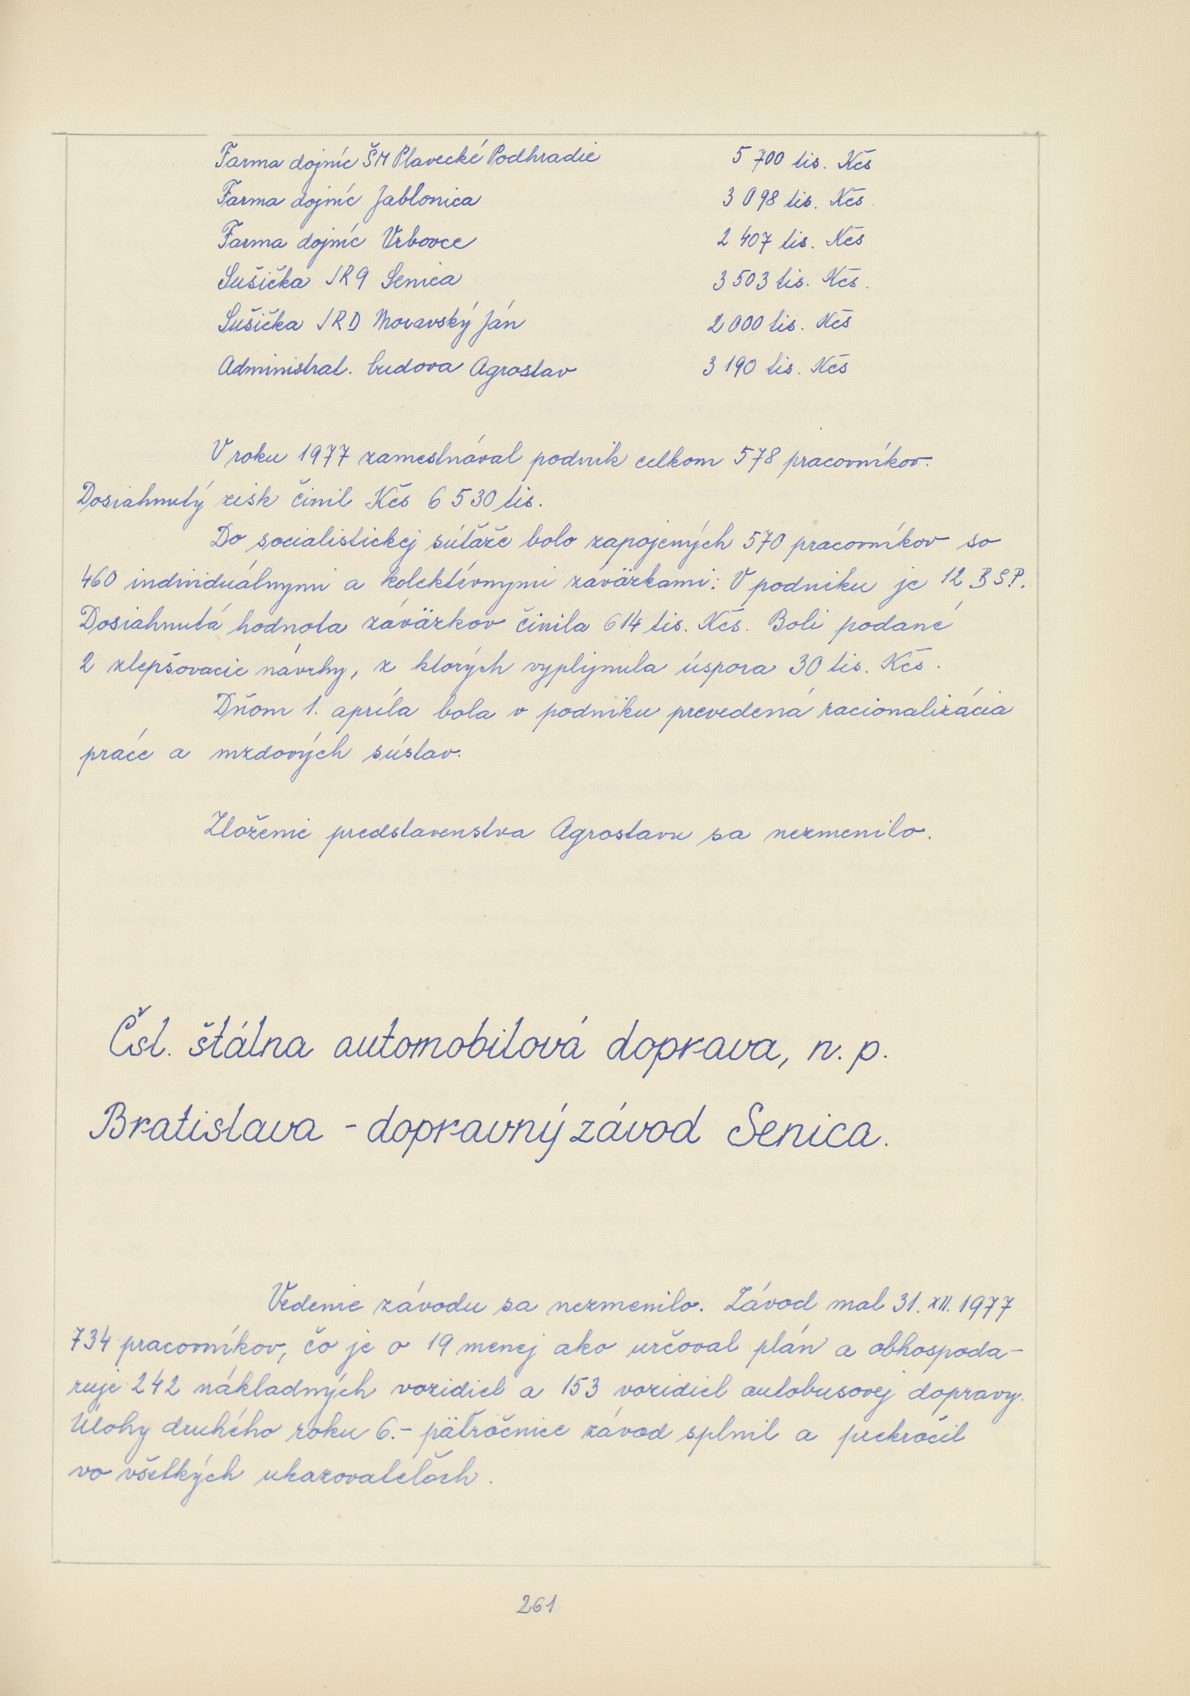 Farma dojníc ŠM Plavecké Podhradie 5 700 tis. Kčs
Farma dojníc Jablonica 3 098 tis. Kčs.
Farma dojníc Vrbovce 2 407 tis. Kčs
Sušička Senica 3 503 tis. Kčs.
Sušička Moravský Ján 2 000 tis. Kčs
Administrat. budova Agrostav 3 190 tis. Kčs
V roku 1977 zamestnával podnik celkom 578 pracovníkov.
Dosiahnutý zisk činil Kčs 6 530 tis.
Do socialistickej súťaže bolo zapojených 570 pracovníkov so
460 individuálnymi a kolektívnymi záväzkami. V podniku je 12 BSP.
Dosiahnutá hodnota záväzkov činila 614 tis. Kčs. Boli podané
2 zlepšovacie návrhy, z ktorých vyplijnula úspora 30 tis. Kčs.
Dňom 1. apríla bola v podniku prevedená racionalizácia
práce a mzdových sústav.
Zloženie predstavenstva Agrostavu sa nezmenilo.
Čsl. štátna automobilová doprava, n. p.
Bratislava - dopravný závod Senica.
Vedenie závodu sa nezmenilo. Závod mal 31. XII. 1977
734 pracovníkov, čo je o 19 menej ako určoval plán a obhospoda-
ruje 242 nákladných vozidiel a 153 vozidiel autobusovej dopravy.
Úlohy druhého roku 6.- päťročnice závod splnil a prekročil
vo všetkých ukazovateľoch.
261